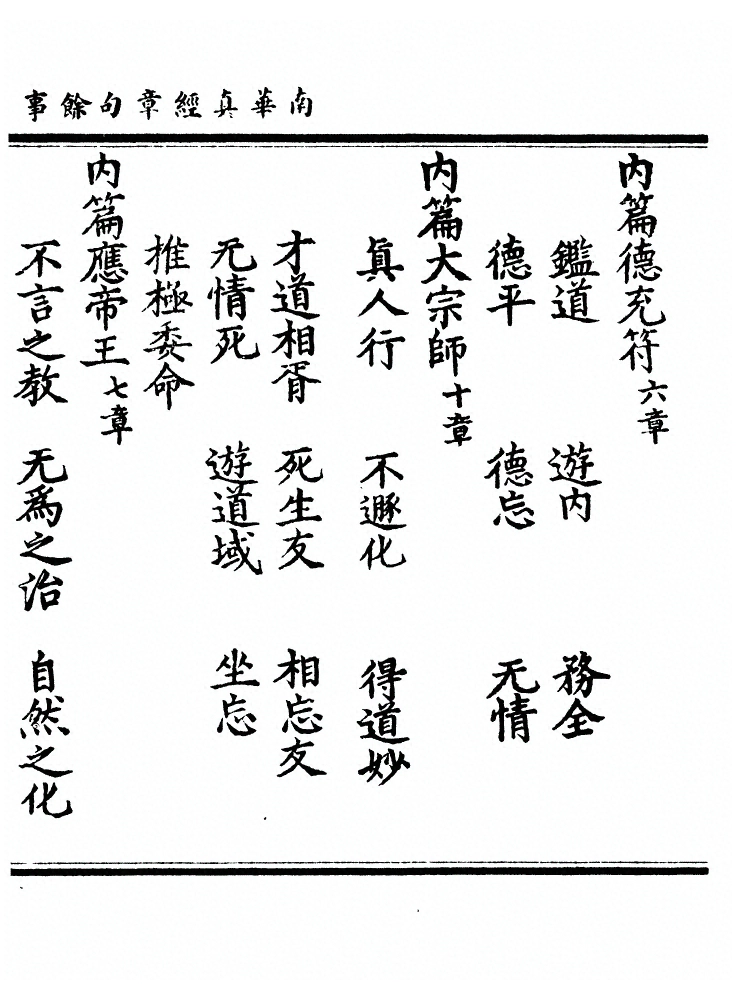 南華真經章句餘事
内篇德充符六章
鑑道 遊内 務全
德平 德忘 无情
内篇大宗師十章
眞人行 不遯化 得道妙
才道相胥 死生友 相忘友
无情死 遊道域 坐忘
推極委命
内篇應帝王七章
不言之教 无爲之治 自然之化